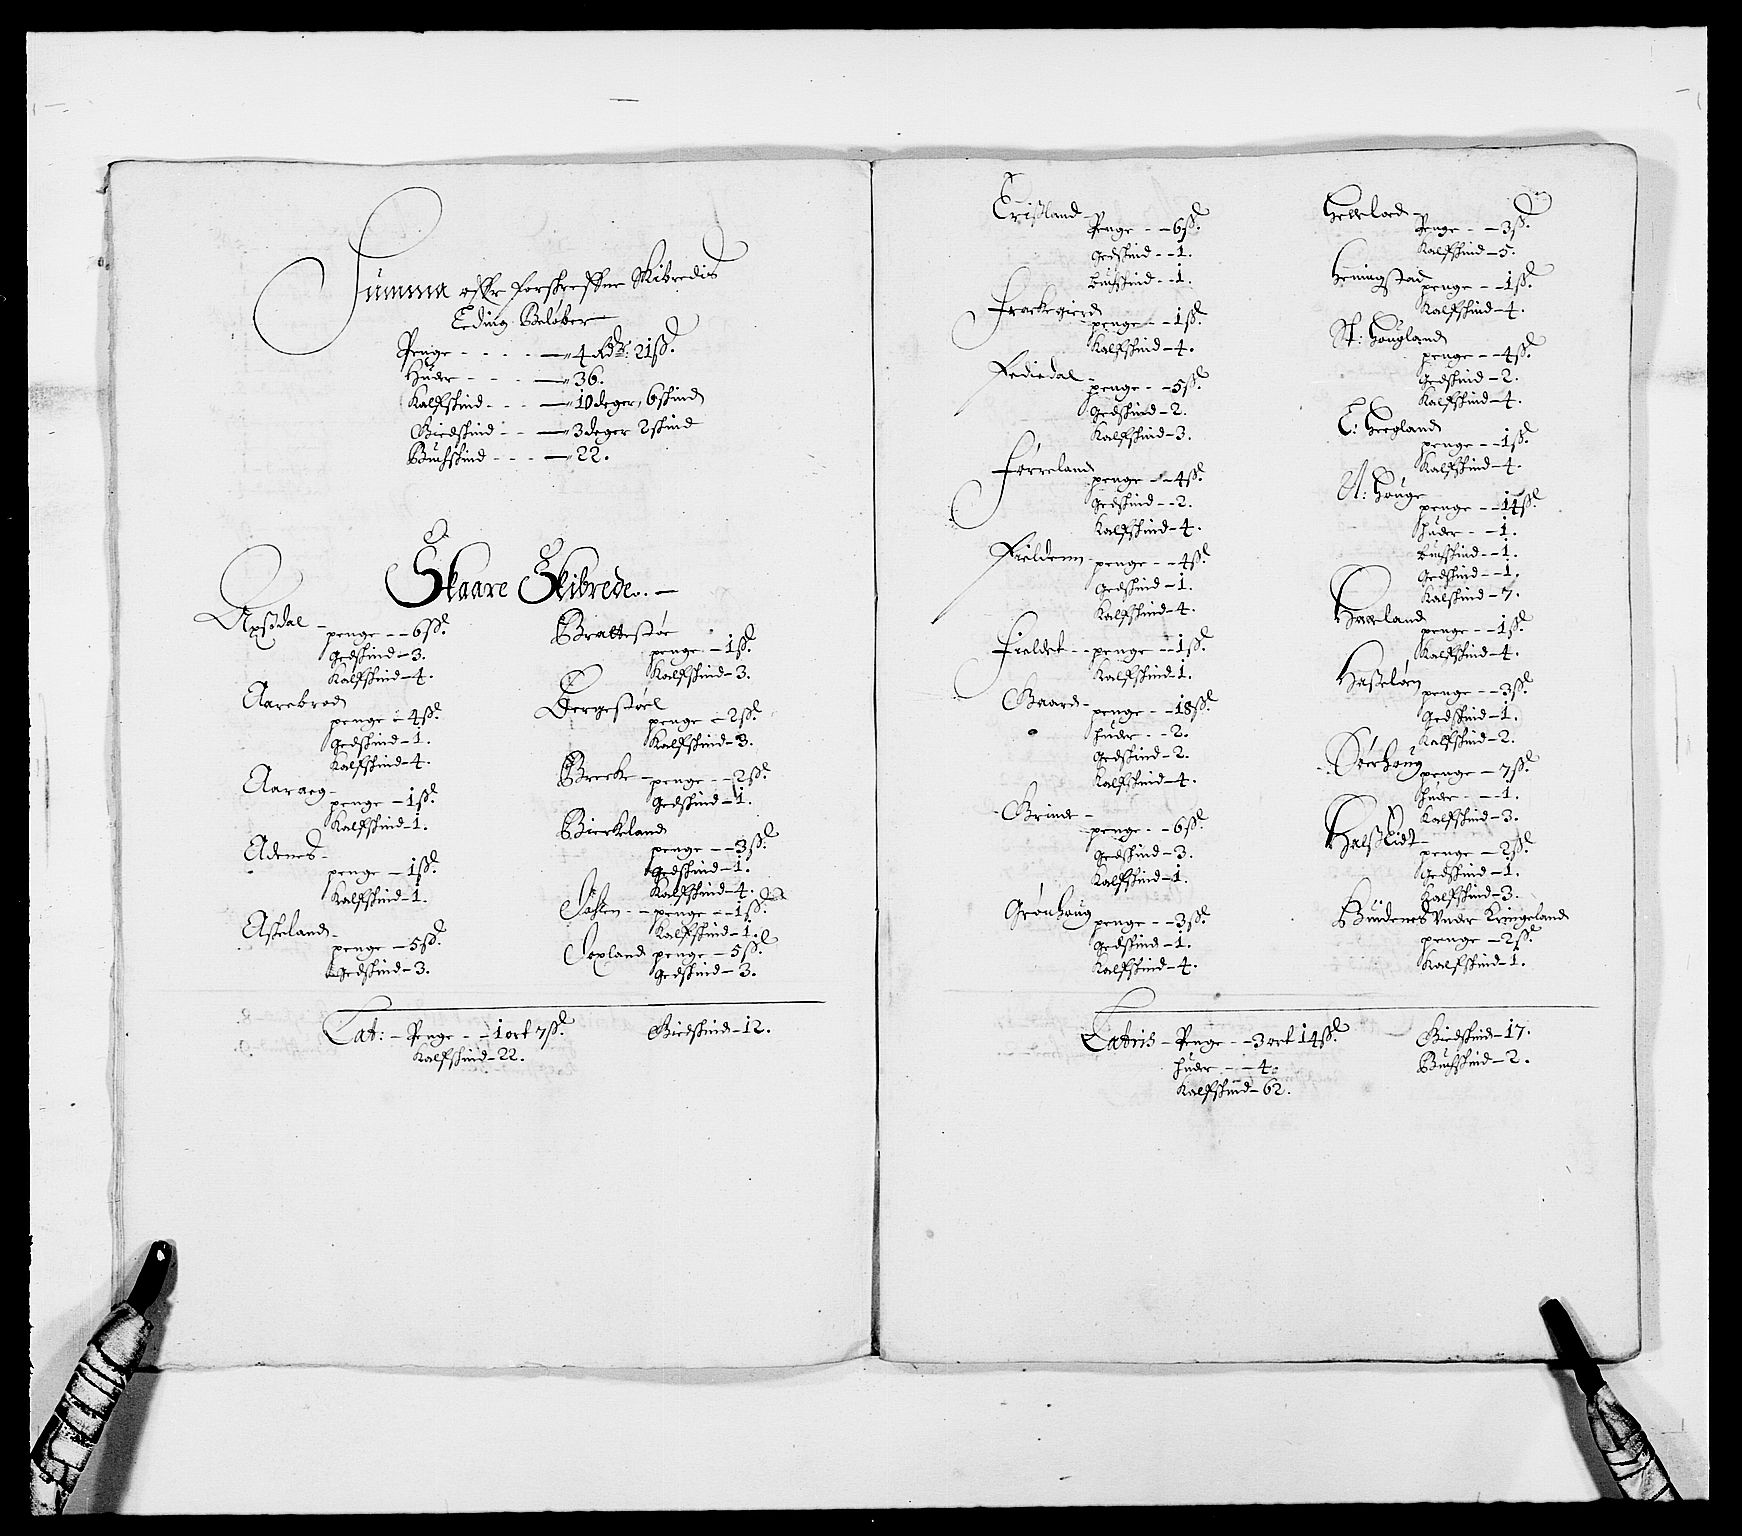 Summa offr forskreffne Skibredis
Leding Beløber
Penge - - - - 4 Rdr: 21 ß.
Huder - - - - 36.
Kalfskind - - - 10 deger, 6 skind
Giedskind - - 3 deger 2 skind
Buchskind - - - 22.
Skaare Skibrede. -
Axsdal -
penge - - 6 ß.
gedskind - 3.
Kalfskind - 4.
Aarebrod
penge - 4 ß.
gedskind - 1.
Kalfskind - 4.
Aaraeg -
penge - 1 ß.
Kalfskind - 1.
Adenes -
penge - 1 ß.
Kalfskind - 1.
Askeland -
penge - 5 ß.
gedskind - 3.
Brattestøe
penge - - 1 ß.
Kalfskind - 3.
Bergestøel
penge - 2 ß.
Kalfskind - 3.
Brecke - penge - - 2 ß.
gedskind - 1.
Bierkeland
penge - - 3 ß.
gedskind - 1.
Kalfskind - 4.
penge - - 1 ß.
Kalfskind - 1.
penge - 5 ß.
gedskind - 3.
Lat: - Penge - - 1 ort 7 ß.
Kalfskind - 22.
Giedskind - 12.
Erisland -
Penge - - 6 ß.
gedskind - - 1.
buchskind - - 1.
Frackegierd
penge - - 1 ß.
Kalfskind - 4.
Fediedal -
penge - - 5 ß.
gedskind - 2.
Kalfskind - 3.
Førreland
penge - - 4 ß.
gedskind - - 2.
Kalfskind - 4.
Fieldenn - penge - - 4 ß.
gedskind - 1.
Kalfskind - 4.
Fieldet - - penge - - 1 ß.
Kalfskind - 1.
Gaard - penge - - 18 ß.
huder - - 2.
gedskind - 2.
Kalfskind - 4.
Grinde -
penge - - 6 ß.
gedskind - 3.
Kalfskind - 1.
Grønhoug penge - - 3 ß.
gedskind - 1.
Kalfskind - 4.
Penge - - 3 ß.
Kalfskind - 5.
Hemingstad penge - - 1 ß.
Kalfskind - 4.
St: Hougland
penge - - 4 ß.
gedskind - 2.
Kalfskind - 4.
L: Hougland
penge - - 1 ß.
Kalfskind - 4.
A: Houge
penge - - 14 ß.
huder - - 1.
buchskind - - 1.
gedskind - - 1.
Kalfskind - 7.
Haaland
penge - - 1 ß.
Kalfskind - 4.
Hasseløen
penge - - 3 ß.
gedskind - 1.
Kalfskind - 2.
Sørhoug penge - 7 ß.
huder - - - 1.
Kalfskind - 3.
penge - 2 ß.
gedskind - 1.
Kalfskind - 3.
Under Kringeland
penge - 2 ß.
Kalfskind - 1.
Lateris - Penge - - 3 ort 14 ß.
huder - - 4.
Kalfskind - 62.
Giedskind - 17.
Buchskind - 2.